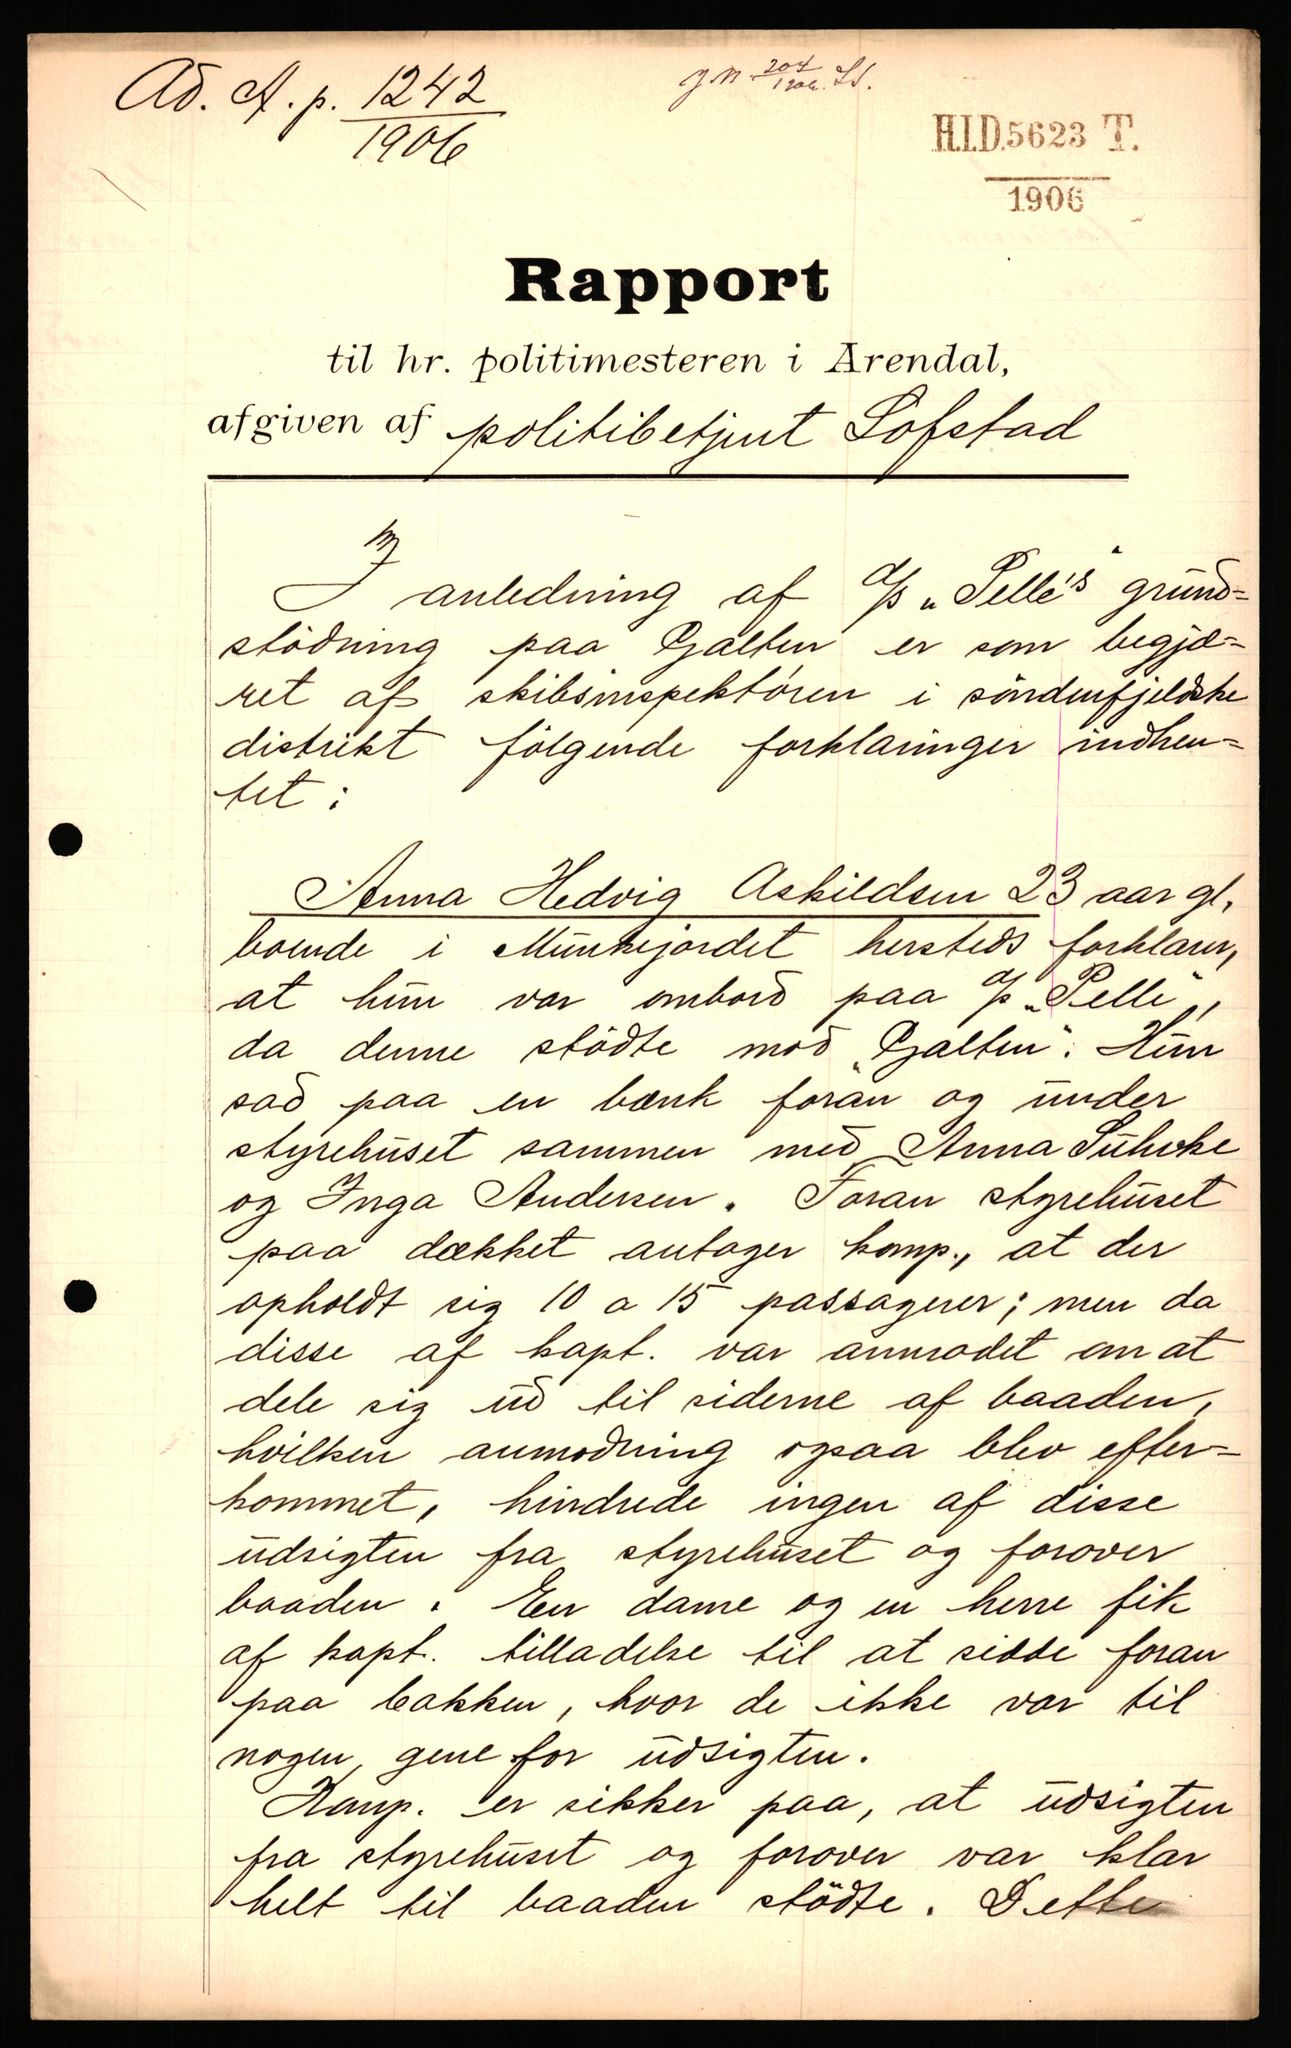 Ad. A. p. 1242
1906
j n 204
1906.
H.I.D. 5623 T.
1906
Rapport
til hr. politimesteren i Arendal,
afgiven af politibetjent Lofstad
I anledning af d/s „Pelle's" grund-
stödning paa Galten er som begjæ-
ret af skibsinspektören i söndenfjeldske
distrikt fölgende forklaringer indhen-
tet:
Anna Hedvig Askildsen 23 aar gl.
boende i Munkejordet hersteds forklarer,
at hun var ombord paa d/s „Pelle",
da denne stödte mod „Galten". Hun
sad paa en bænk foran og under
styrehuset sammen med Anna Suhrke
og Inga Andersen. Foran styrehuset
paa dækket antager komp., at der
opholdt sig 10 a 15 passagerer; men da
disse af kapt. var anmodet om at
dele sig ud til siderne af baaden,
hvilken anmodning ogsaa blev efter-
kommet, hindrede ingen af disse
udsigten fra styrehuset og forover
baaden. En dame og en herre fik
af kapt. tilladelse til at sidde foran
paa bakken, hvor de ikke var til
nogen gene for udsigten.
Komp. er sikker paa, at udsigten
fra styrehuset og forover var klar
helt til baaden stödte. Dette